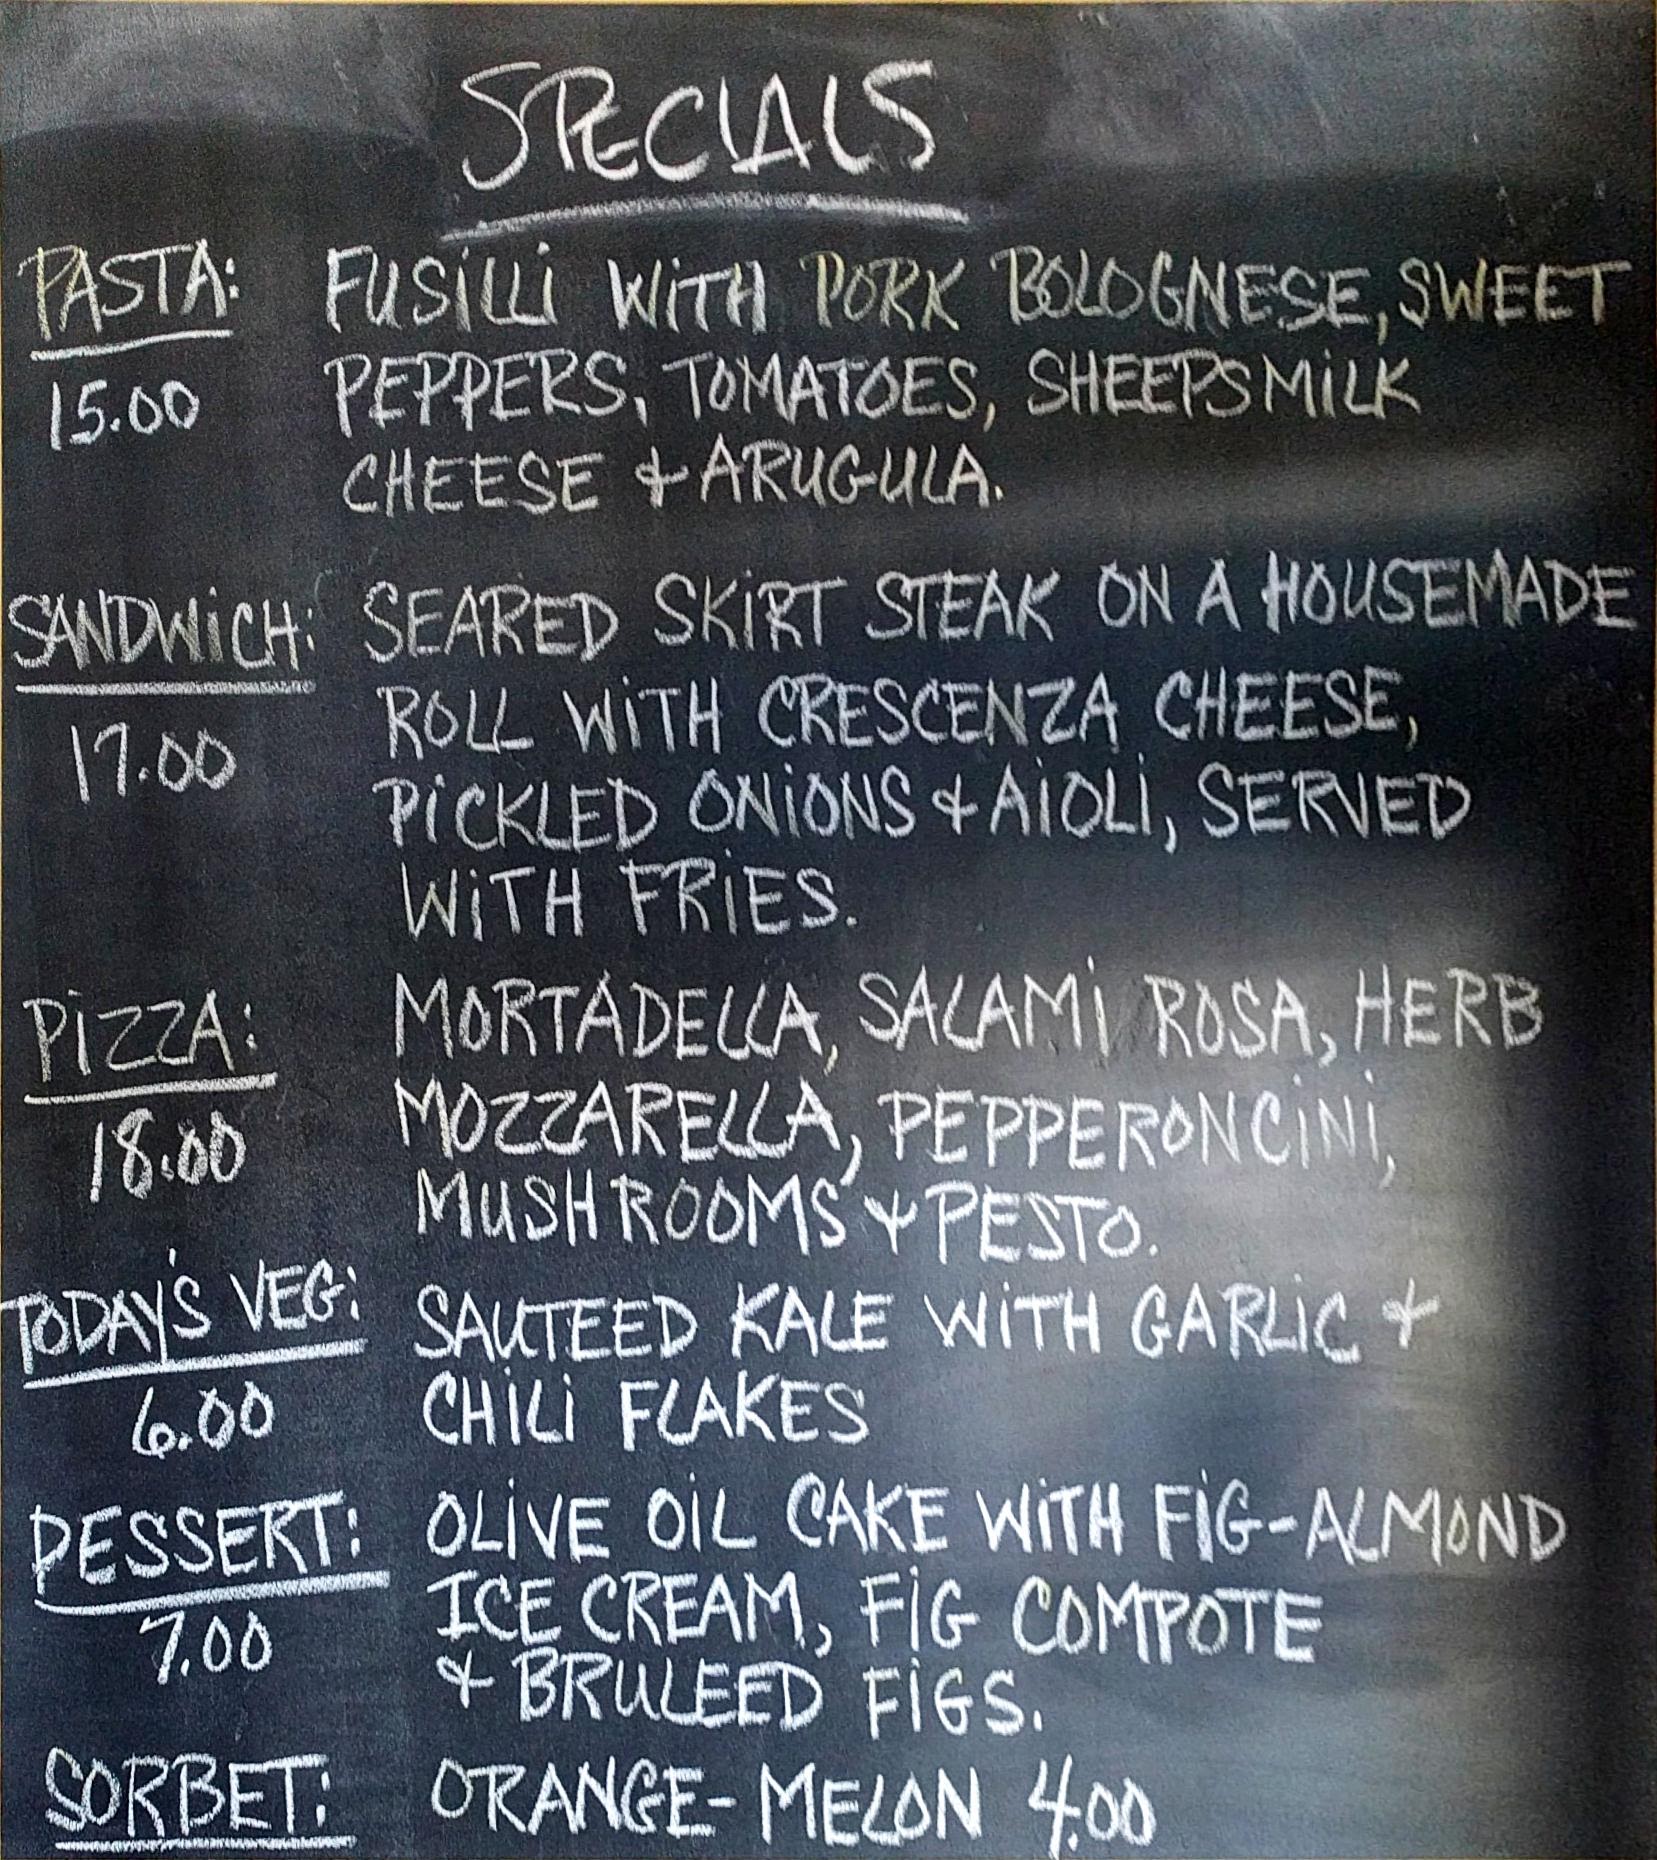 SPECIALS
PASTA: FUSILLI WITH PORK BOLOGNESE, SWEET
15.00 PEPPERS, TOMATOES, SHEEPSMILK
CHEESE & ARUGULA.
SANDWICH: SEARED SKIRT STEAK ON A HOUSEMADE
17.00 ROLL WITH CRESCENZA CHEESE,
PICKLED ONIONS & AIOLI, SERVED
WITH FRIES.
PIZZA: MORTADELLA, SALAMI ROSA, HERB
18.00 MOZZARELLA, PEPPERONCINI,
MUSHROOMS & PESTO.
TODAY'S VEG: SAUTEED KALE WITH GARLIC &
6.00 CHILI FLAKES
DESSERT: OLIVE OIL CAKE WITH FIG-ALMOND
7.00 ICE CREAM, FIG COMPOTE
& BRULEED FIGS.
SORBET: ORANGE-MELON 4.00